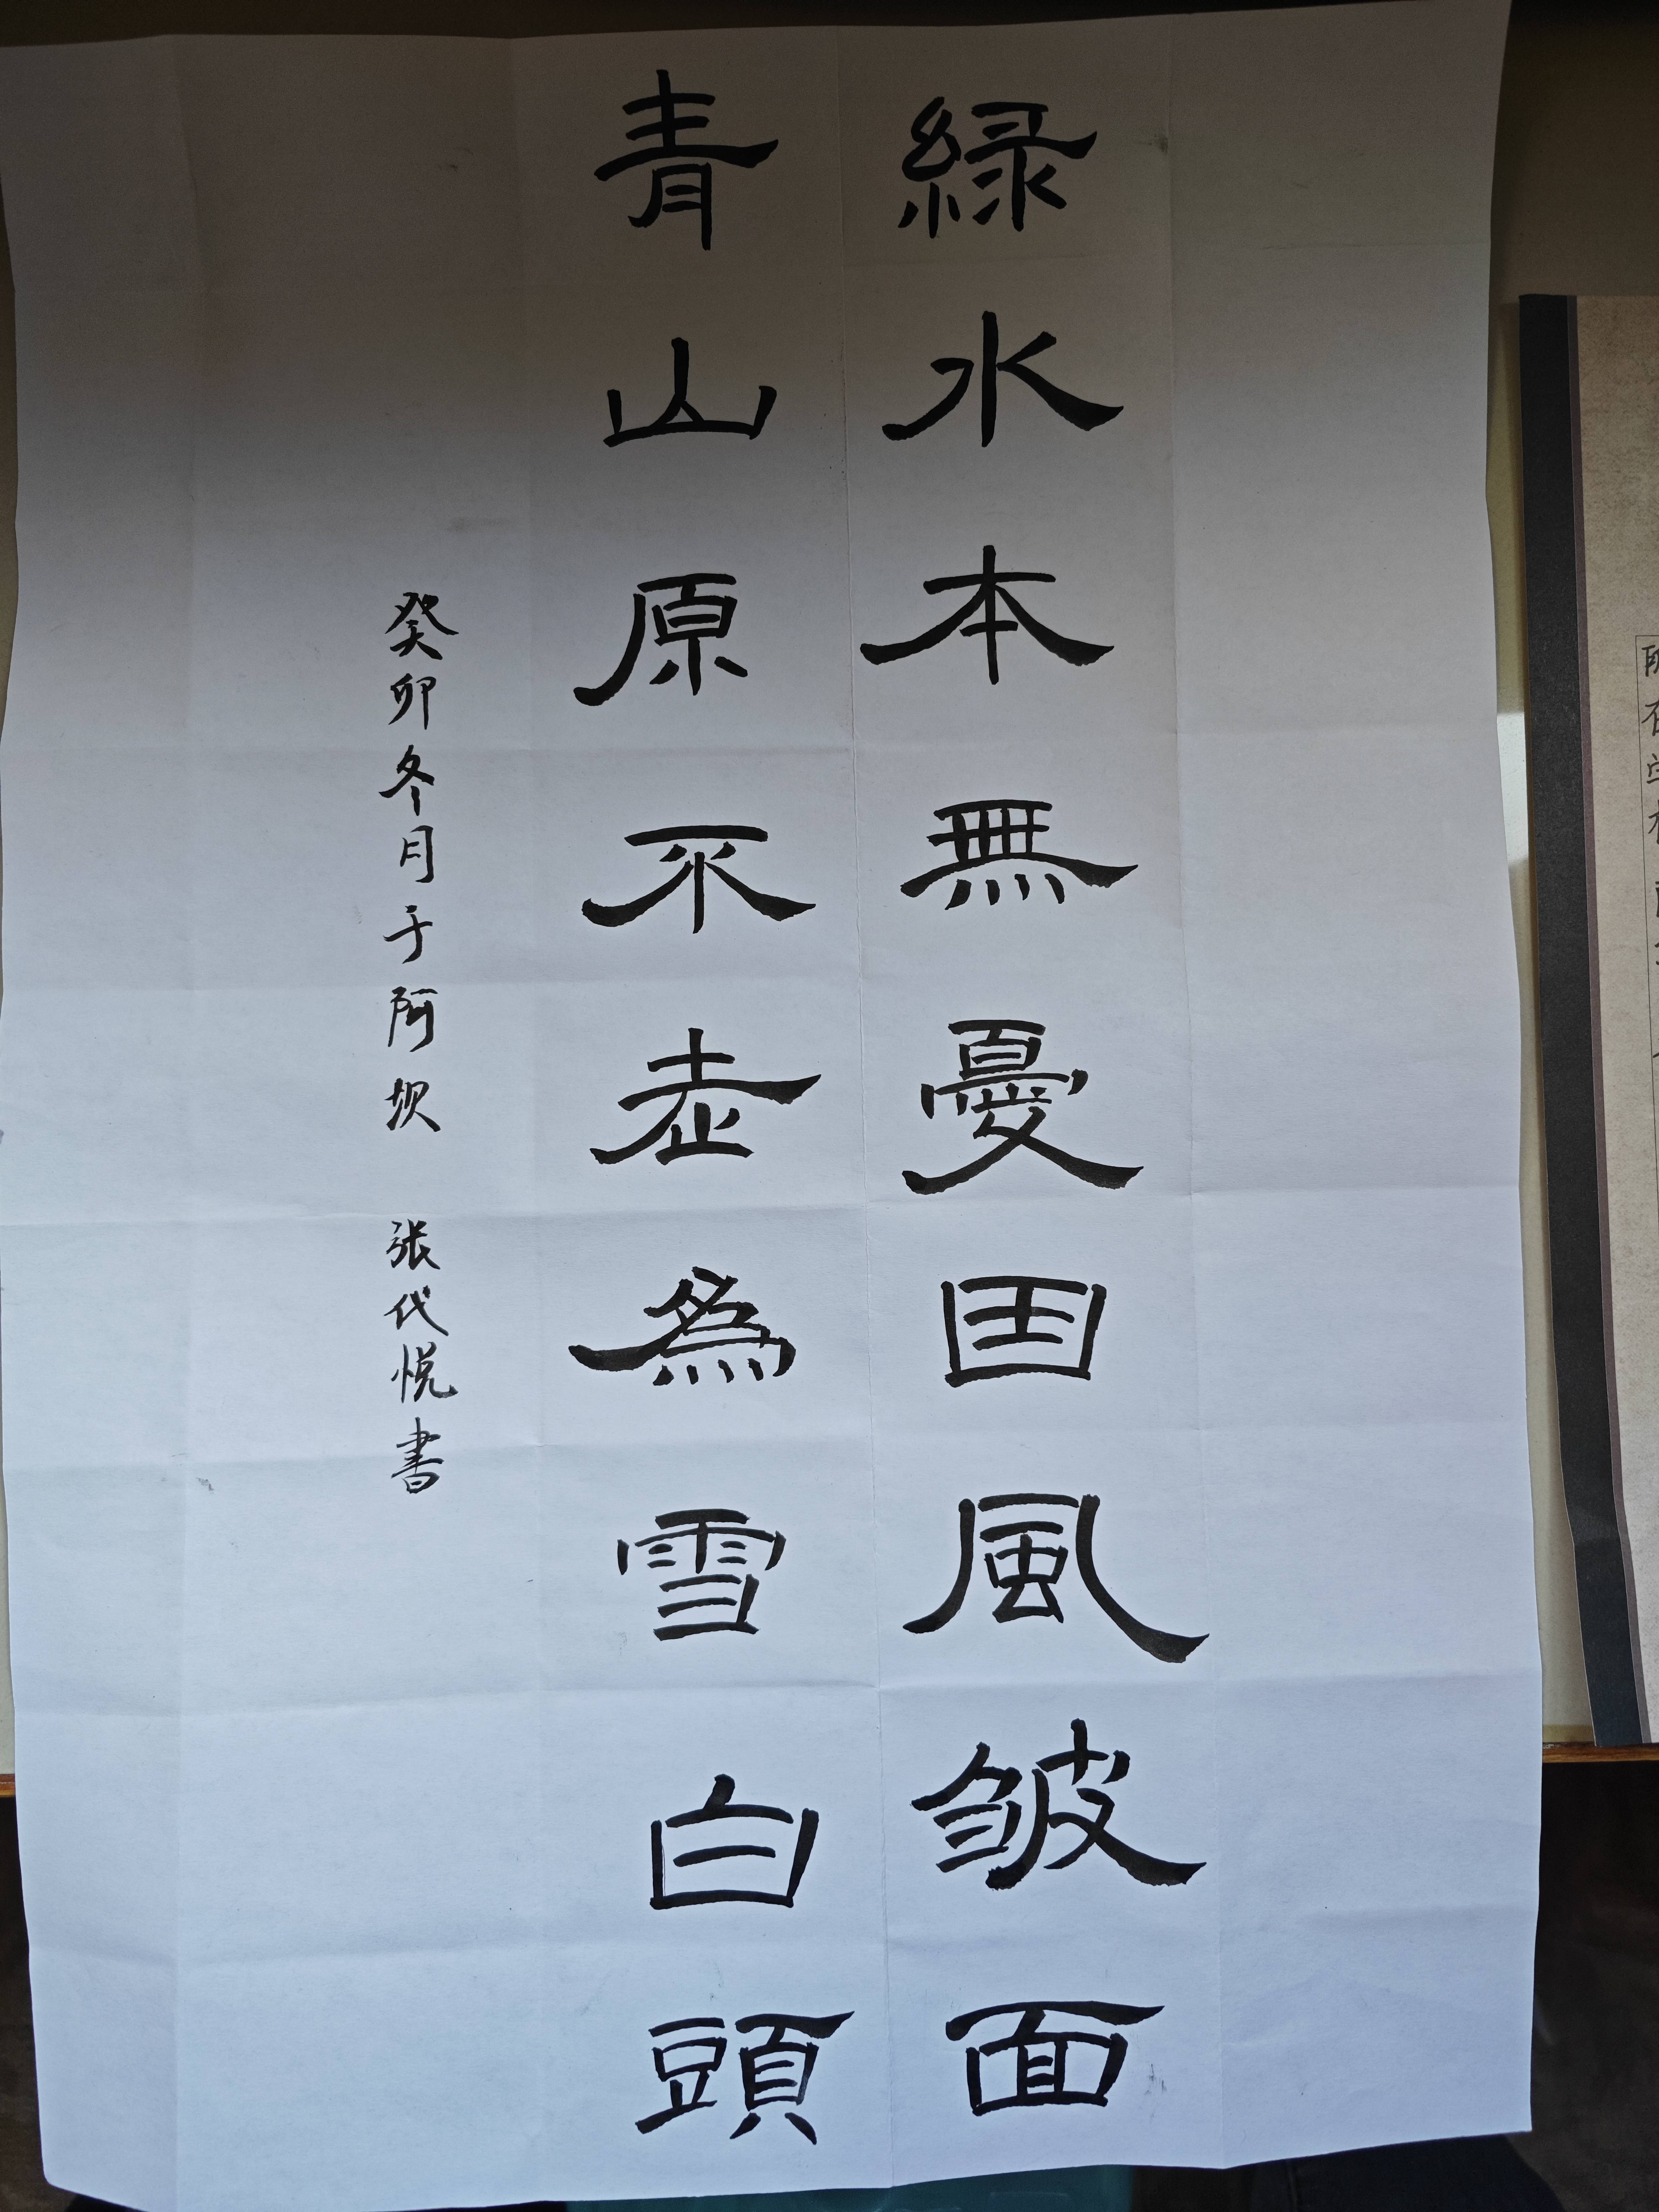 緑水本無憂因風皱面
青山原不老為雪白頭
癸卯冬月于阿坝 張代悦書